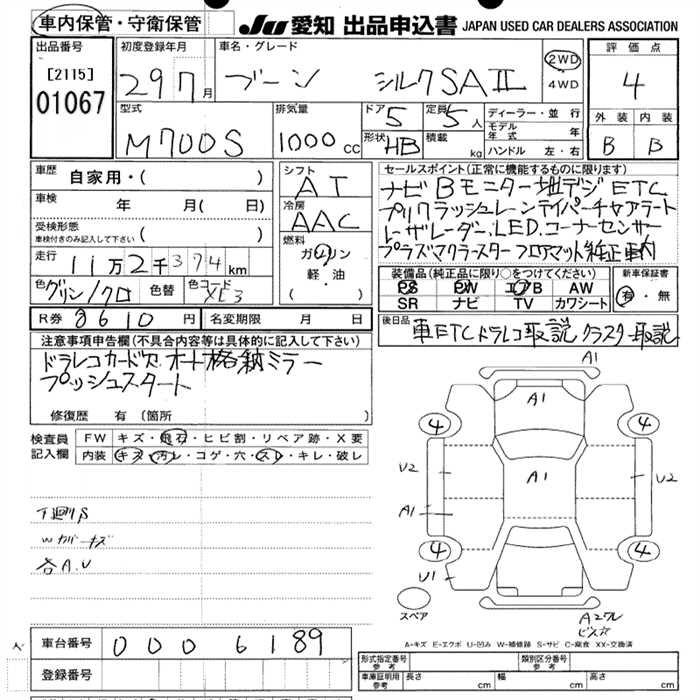 車内保管・守衛保管
JU 愛知 出品申込書 JAPAN USED CAR DEALERS ASSOCIATION
出品番号
[2115]
01067
初度登録年月
29 7月
車名・グレード
ブーン シルクSAⅡ
2WD
4WD
評価点
4
外装 内装
B B
型式
M700S
排気量
1000cc
ドア
5
定員
5人
形状
HB
積載
kg
ディーラー・並行
モデル年式 年
ハンドル 左・右
車歴
自家用・( )
車検
年 月( )
受検形態
車検付きのみ記入して下さい( )
走行
11万2千374km
シフト
AT
冷房
AAC
燃料
ガソリン
軽・油
( )
セールスポイント(正常に機能するものに限ります)
ナビ Bモニター 地デジ ETC
プリクラッシュ レーンデイパーチャアラート
レーザーレーダー.LED.コーナーセンサー
プラズマクラスター フロアマット 純正車内
色
グリン/クロ
色替
色コード
XE3
装備品(純正品に限り○をつけてください)
PS PW エアB AW
SR ナビ TV カワシート
新車保証書
有・無
R券 8610円
名変期限 月 日
後日品
車ETCドラレコ取説 クラスター取説
注意事項申告欄(不具合内容等は具体的に記入して下さい)
ドラレコカード欠 オート格納ミラー
プッシュスタート
修復歴 有(箇所 )
検査員
記入欄
FW キズ・飛石・ヒビ割・リペア跡・X要
内装 キズ・汚レ・コゲ・穴・スレ・キレ・破レ
下廻りβ
Wガキズ
各A.U
A1
A1
4
4
U2
A1
U2
A1
4
4
U1
スペア
A2クル
ビス穴
A-キズ E-エクボ U-凹み W-補修跡 S-サビ C-腐食 XX-交換済
車台番号
0006189
登録番号
形式指定番号
参考
類別区分番号
参考
車庫証明用
参考
長さ cm
幅 cm
高さ cm